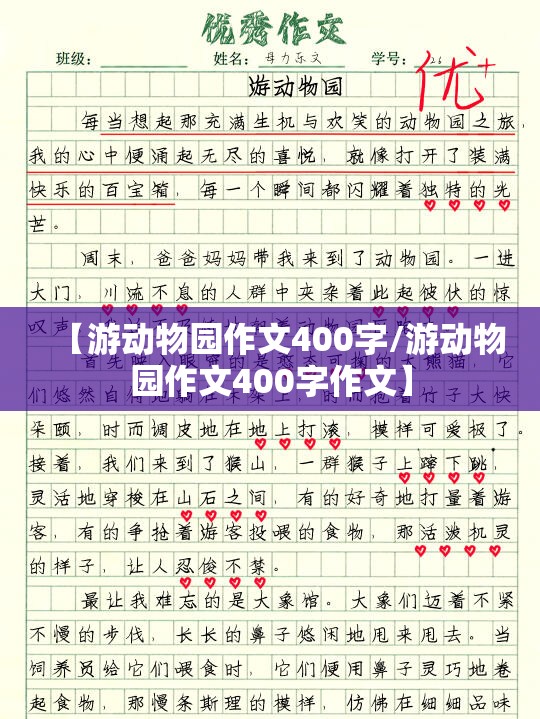 优秀作文
班级: 姓名: 母力乐文 学号: 26
优+
游动物园
每当想起那充满生机与欢笑的动物园之旅,
我的心中便涌起无尽的喜悦,就像打开了装满
快乐的百宝箱,每一个瞬间都闪耀着独特的光
芒。
周末,爸爸妈妈带我来到了动物园。一进
大门,川流不息的人群中夹杂着此起彼伏的惊
叹声
【游动物园作文400字/游动物
园作文400字作文】
朵颐,时而调皮地在地上打滚,模样可爱极了。
接着,我们来到了猴山,一群猴子上蹿下跳,
灵活地穿梭在山石之间,有的好奇地打量着游
客,有的争抢着游客投喂的食物,那活泼机灵
的样子,让人忍俊不禁。
最让我难忘的是大象馆。大象们迈着不紧
不慢的步伐,长长的鼻子悠闲地甩来甩去。当
饲养员给它们喂食时,它们便用鼻子灵巧地卷
起食物,那慢条斯理的模样,仿佛在细细品味